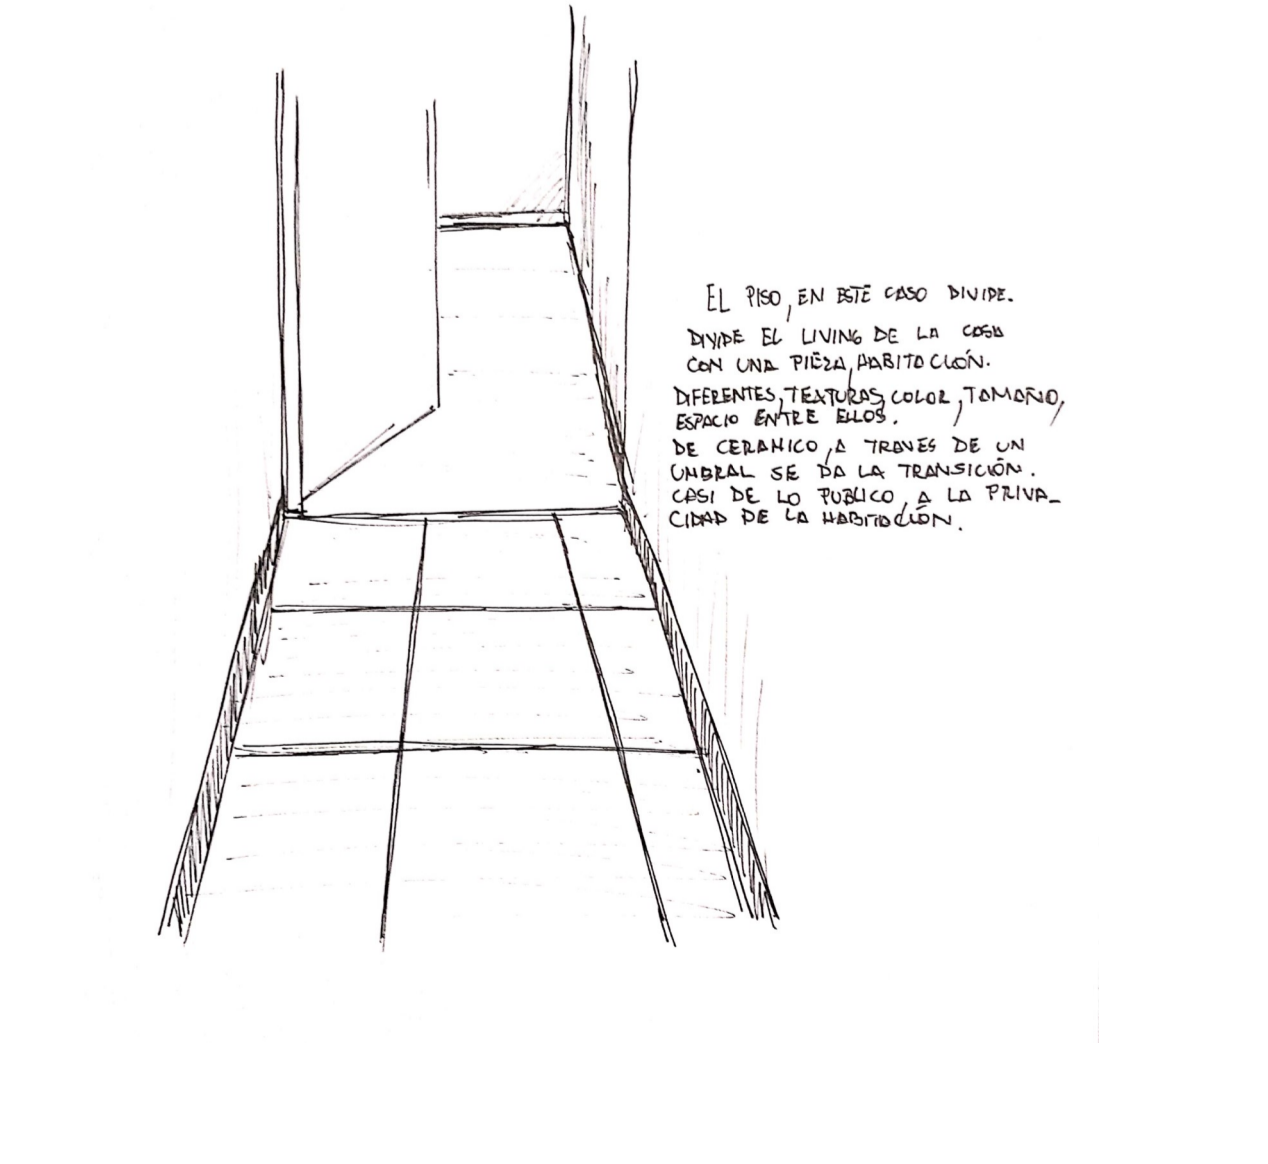 EL PISO, EN ESTE CASO DIVIDE.
DIVIDE EL LIVING DE LA CASA
CON UNA PIEZA, HABITACIÓN.
DIFERENTES, TEXTURAS, COLOR, TAMAÑO,
ESPACIO ENTRE ELLOS.
DE CERAMICO, A TRAVES DE UN
UMBRAL SE DA LA TRANSICIÓN.
CASI DE LO PUBLICO, A LA PRIVA_
CIDAD DE LA HABITACIÓN.